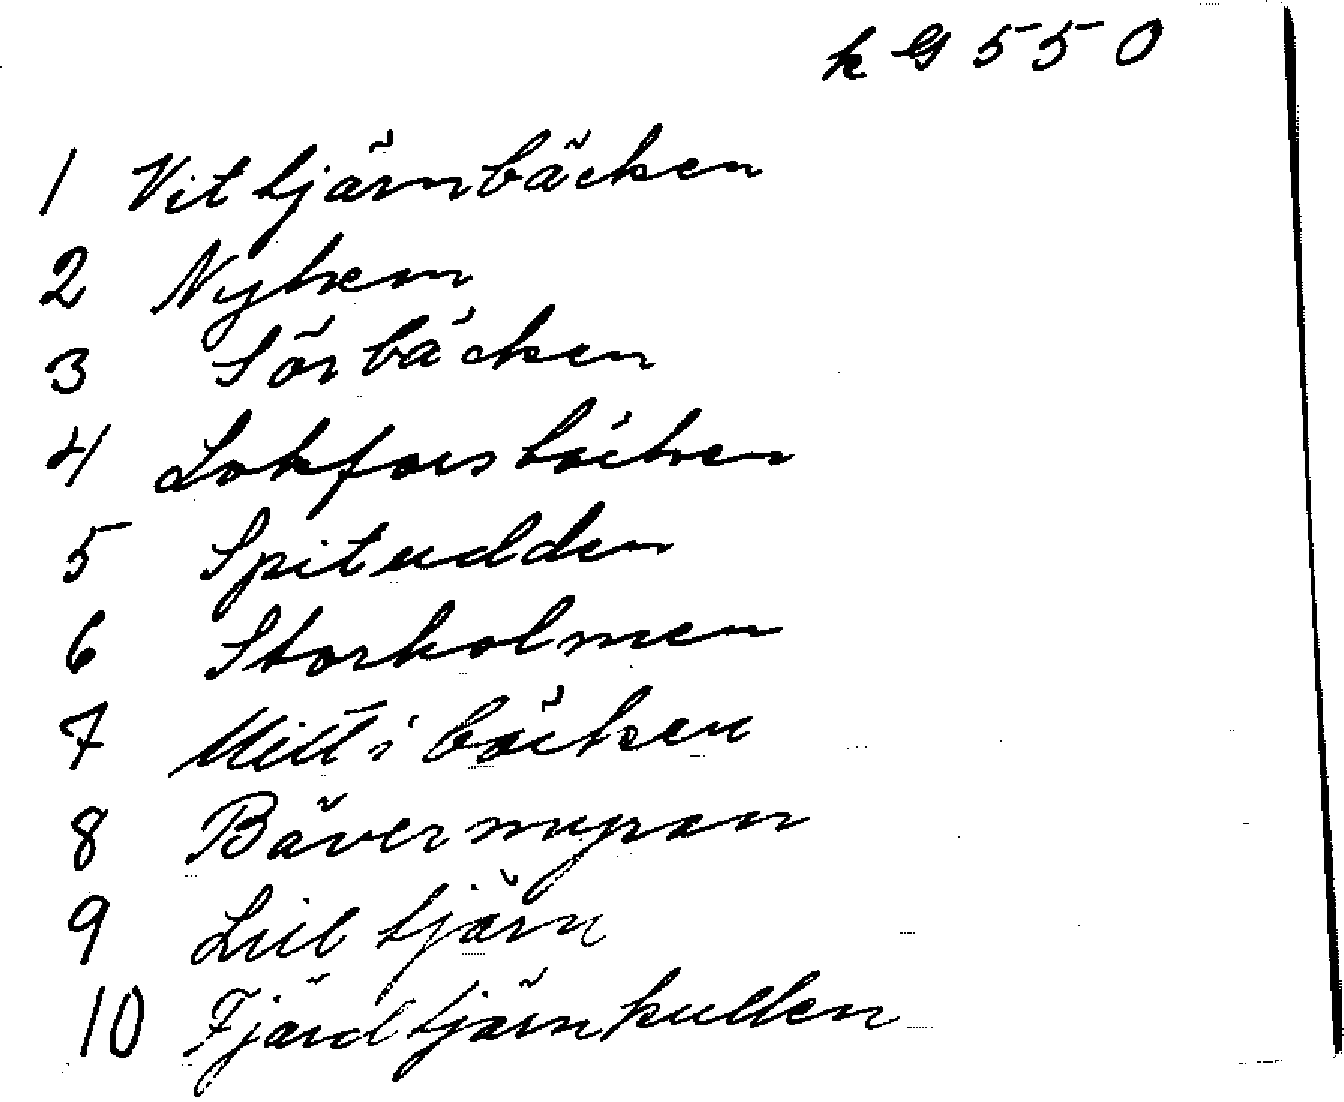 k G 550
1 Vittjärnbäcken
2 Nyhem
3 Sörbäcken
4 Lokforsbäcken
5 Spitudden
6 Storholmen
7 Mitti bäcken
8 Bävermyran
9 Lill tjärn
10 Fjärdtjärnkullen